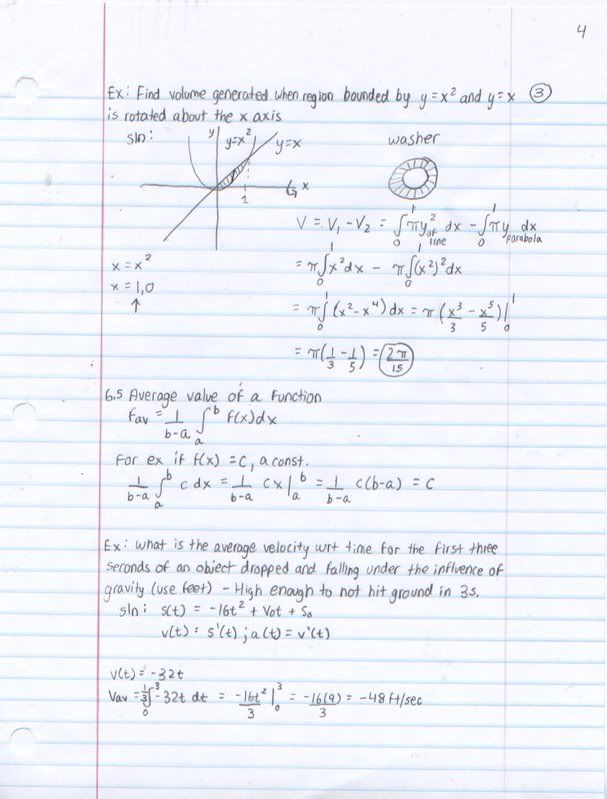 4
Ex: Find volume generated when region bounded by y=x² and y=x ③
is rotated about the x axis
sln:
y
y=x²
y=x
x
1
washer
V = V₁ - V₂ = ∫₀¹ πy² dx - ∫₀¹ πy dx
of line
parabola
x = x²
x = 1,0
↑
= π∫₀¹ x² dx - π∫₀¹ (x²)² dx
= π∫₀¹ (x² - x⁴) dx = π (x³/3 - x⁵/5)|₀¹
= π(1/3 - 1/5) = 2π/15
6.5 Average value of a Function
Fav = 1/(b-a) ∫ₐᵇ f(x)dx
For ex if f(x) = C, a const.
1/(b-a) ∫ₐᵇ c dx = 1/(b-a) cx|ₐᵇ = 1/(b-a) c(b-a) = C
Ex: what is the average velocity wrt time for the first three
seconds of an object dropped and falling under the influence of
gravity (use feet) - High enough to not hit ground in 3s.
sln: s(t) = -16t² + V₀t + S₀
v(t) = s'(t) ; a(t) = v'(t)
v(t) = -32t
Vav = 1/3 ∫₀³ -32t dt = -16t²/3 |₀³ = -16(9)/3 = -48 ft/sec